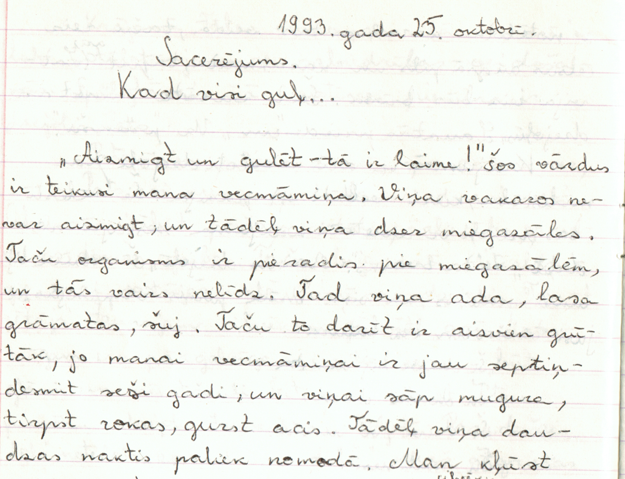 1993. gada 25. oktobrī.
Sacerējums.
Kad visi guļ...
„Aizmigt un gulēt – tā ir laime!" šos vārdus
ir teikusi mana vecmāmiņa. Viņa vakaros ne-
var aizmigt, un tādēļ viņa dzer miegazāles.
Taču organisms ir pieradis pie miegazālēm,
un tās vairs nelīdz. Tad viņa ada, lasa
grāmatas, šuj. Taču to darīt ir aizvien grū-
tāk, jo manai vecmāmiņai ir jau septiņ-
desmit seši gadi, un viņai sāp mugura,
tirpst rokas, gurst acis. Tādēļ viņa dau-
dzas naktis paliek nomodā. Man kļūst